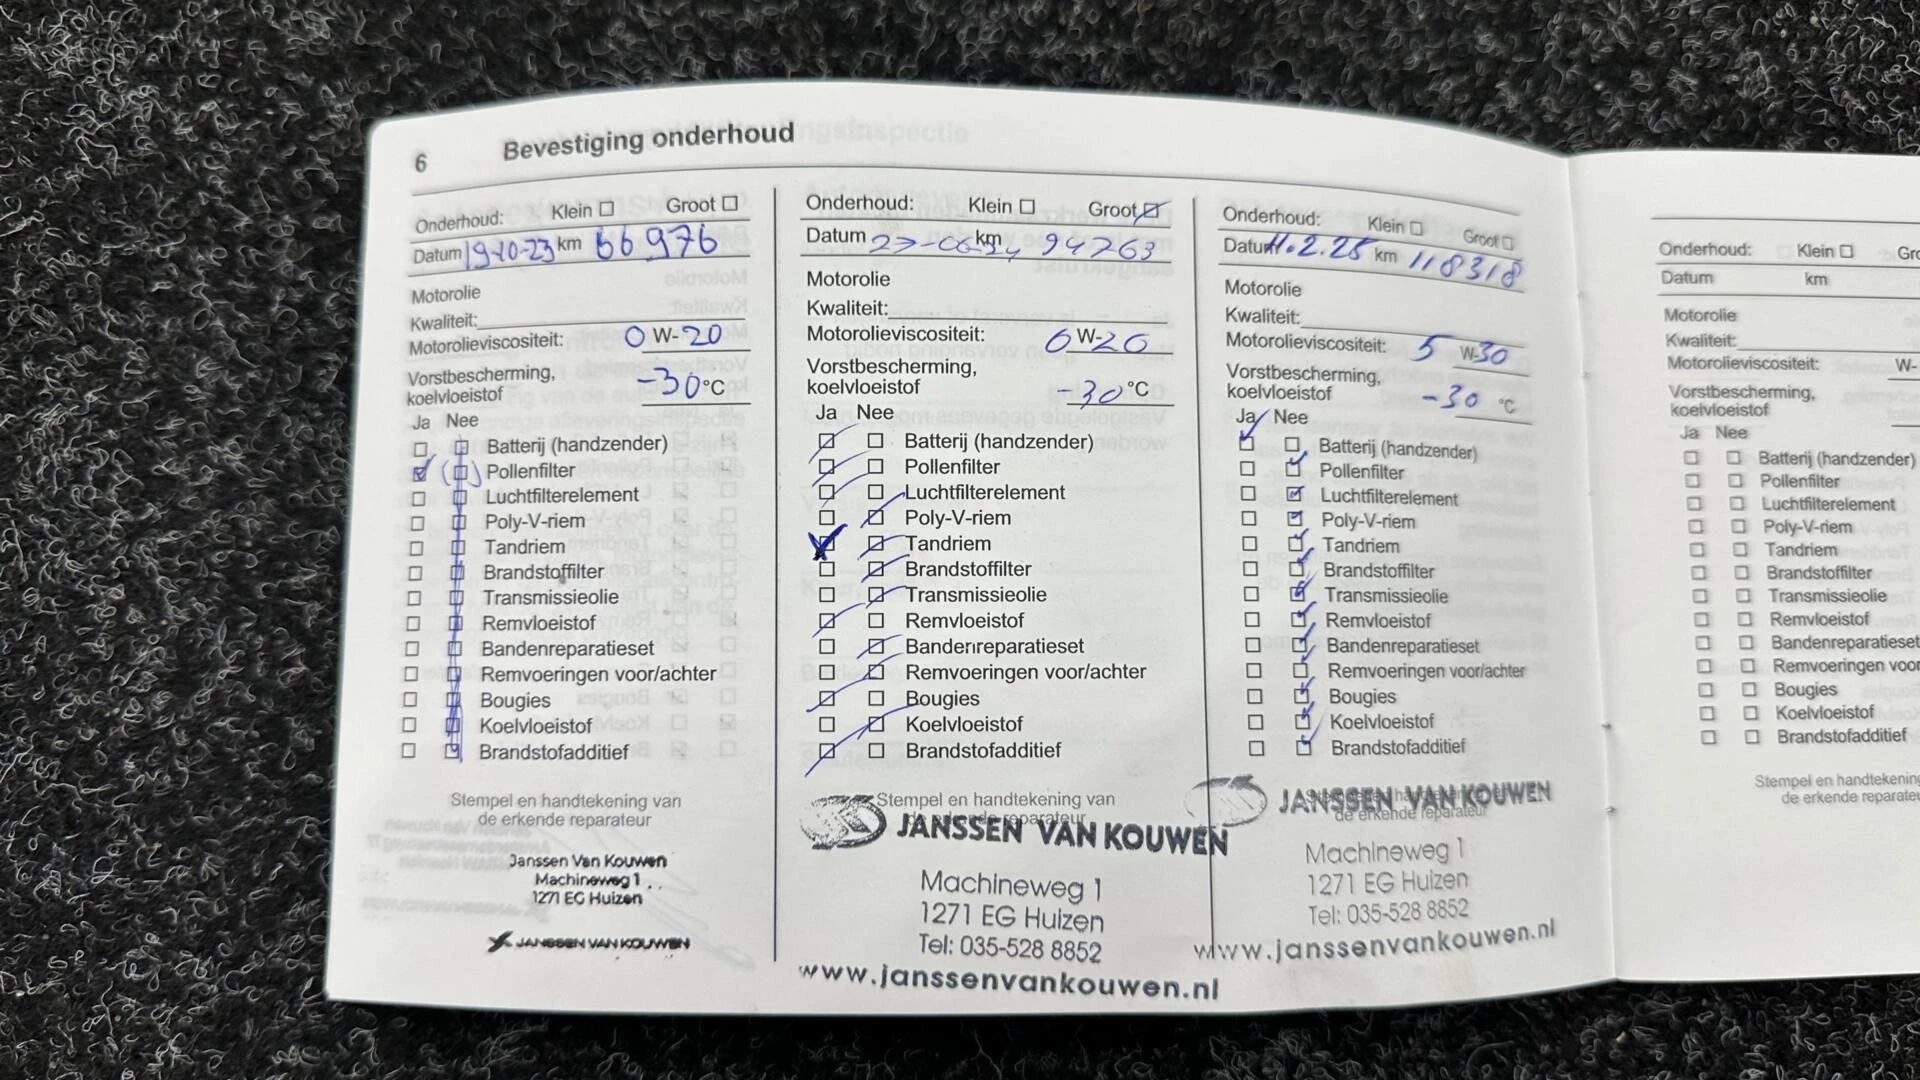 6 Bevestiging onderhoud
Onderhoud: Klein ☐ Groot ☐
Datum 19-10-23 km 66976
Motorolie
Kwaliteit:
Motorolieviscositeit: 0 W-20
Vorstbescherming,
koelvloeistof -30 °C
Ja Nee
Batterij (handzender)
Pollenfilter
Luchtfilterelement
Poly-V-riem
Tandriem
Brandstoffilter
Transmissieolie
Remvloeistof
Bandenreparatieset
Remvoeringen voor/achter
Bougies
Koelvloeistof
Brandstofadditief
Stempel en handtekening van
de erkende reparateur
Janssen Van Kouwen
Machineweg 1
1271 EG Huizen
JANSSEN VAN KOUWEN
Onderhoud: Klein ☐ Groot ☑
Datum 27-06-24 km 94763
Motorolie
Kwaliteit:
Motorolieviscositeit: 0 W-20
Vorstbescherming,
koelvloeistof -30 °C
Ja Nee
Batterij (handzender)
Pollenfilter
Luchtfilterelement
Poly-V-riem
Tandriem
Brandstoffilter
Transmissieolie
Remvloeistof
Bandenreparatieset
Remvoeringen voor/achter
Bougies
Koelvloeistof
Brandstofadditief
Stempel en handtekening van
de erkende reparateur
JANSSEN VAN KOUWEN
Machineweg 1
1271 EG Huizen
Tel: 035-528 8852
www.janssenvankouwen.nl
Onderhoud: Klein ☐ Groot ☐
Datum 11.2.25 km 118318
Motorolie
Kwaliteit:
Motorolieviscositeit: 5 W-30
Vorstbescherming,
koelvloeistof -30 °C
Ja Nee
Batterij (handzender)
Pollenfilter
Luchtfilterelement
Poly-V-riem
Tandriem
Brandstoffilter
Transmissieolie
Remvloeistof
Bandenreparatieset
Remvoeringen voor/achter
Bougies
Koelvloeistof
Brandstofadditief
Stempel en handtekening van
de erkende reparateur
JANSSEN VAN KOUWEN
Machineweg 1
1271 EG Huizen
Tel: 035-528 8852
www.janssenvankouwen.nl
Onderhoud: Klein ☐ Gro
Datum km
Motorolie
Kwaliteit:
Motorolieviscositeit: W-
Vorstbescherming,
koelvloeistof
Ja Nee
Batterij (handzender)
Pollenfilter
Luchtfilterelement
Poly-V-riem
Tandriem
Brandstoffilter
Transmissieolie
Remvloeistof
Bandenreparatieset
Remvoeringen voor
Bougies
Koelvloeistof
Brandstofadditief
Stempel en handtekening
de erkende reparateu